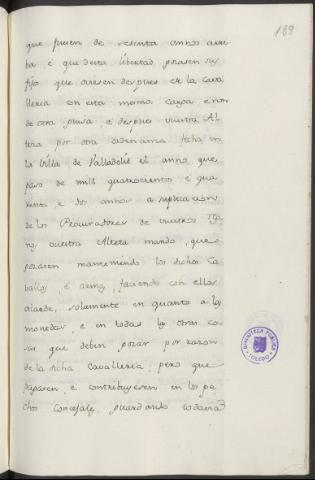 189
que fuesen de sesenta annos arri-
ba, é que desta libertad gozasen sus
fijos que oviesen despues de la Cava-
lleria con esta mesma carga, e non
de otra guisa; é despues vuestra Al-
teza por otra ordenanza fecha en
la villa de Valladolid el anno que
paso de mill quatrocientos é qua-
renta e dos annos a suplicacion
de los Procuradores de vuestros Reg-
nos vuestra Alteza mandó, que
gozasen manteniendo los dichos Ca-
ballos, é armas, faciendo con ellos
alarde, solamente en quanto a las
monedas, e en todas las otras co-
sas que deben gozar por razon
de la dicha Cavalleria; pero que
pagasen e contribuyesen en los pe-
chos Concejales, guardando todavia
BIBLIOTECA PUBLICA
TOLEDO